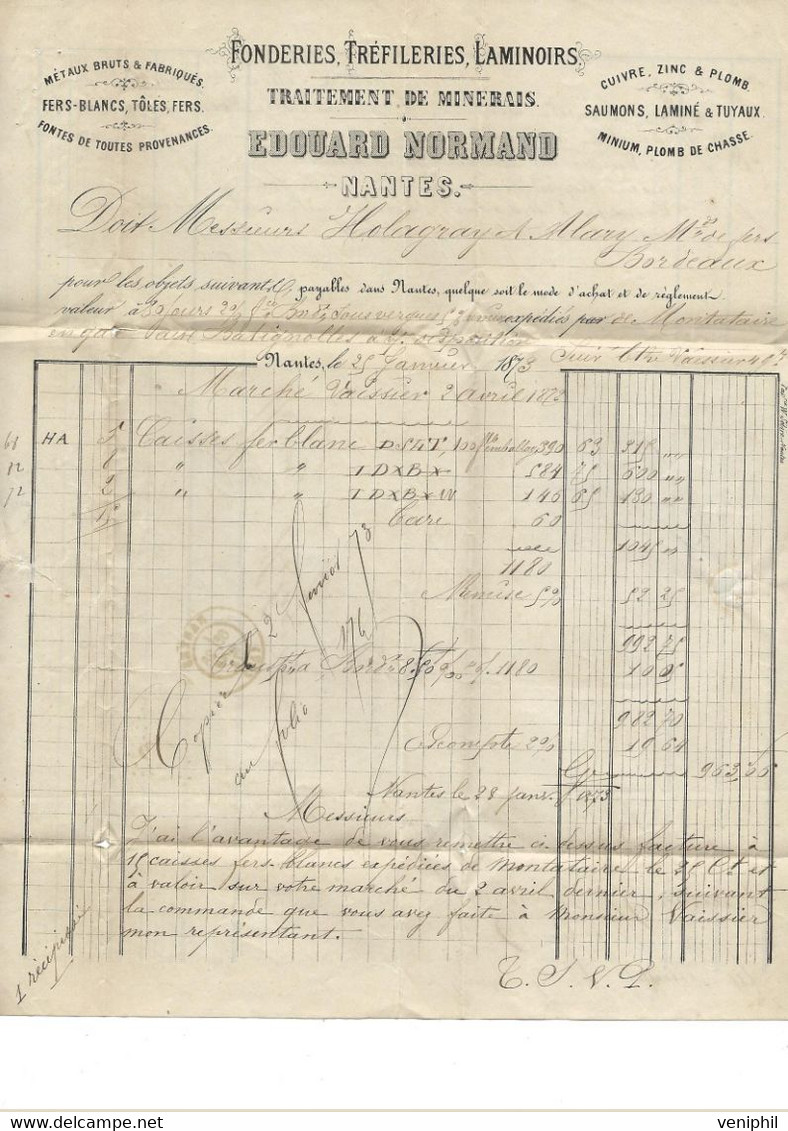 MÉTAUX BRUTS & FABRIQUÉS.
FERS-BLANCS, TÔLES, FERS.
FONTES DE TOUTES PROVENANCES.
FONDERIES, TRÉFILERIES, LAMINOIRS,
TRAITEMENT DE MINERAIS.
EDOUARD NORMAND
NANTES.
CUIVRE, ZINC & PLOMB.
SAUMONS, LAMINÉ & TUYAUX.
MINIUM, PLOMB DE CHASSE.
Doit Messieurs Holagray & Alary Mds de fers
Bordeaux
pour les objets suivants, payables dans Nantes, quelque soit le mode d'achat et de règlement.
valeur à jours 2% expédiés par de Montataire
en gare Batignolles
Nantes, le 25 Janvier 1873
Marché Vaissier 2 avril 1872
68 HA 5 Caisses fer blanc 390 63 315 "
82 8 " " I D X B X 584 75 600 "
72 2 " " I D X B X W 146 65 130 "
15 Tare 60
1045 "
1180
Remise 5% 52 25
992 75
1180 10 05
982 70
Escompte 2% 19 64
963,06
2 Février 73
Copier
au folio
176
Nantes le 28 Janv. 1873
Messieurs
J'ai l'avantage de vous remettre ci dessus facture à
15 caisses fers-blancs expédiées de Montataire le 25 Ct et
à valoir sur votre marché du 2 avril dernier, suivant
la commande que vous avez faite à Monsieur Vaissier
mon représentant.
1 récépissé
T. S. V. P.
veniphil